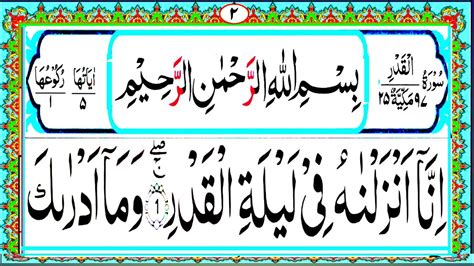 ٢
سُوْرَةُ الْقَدْرِ ٩٧ مَكِّيَّةٌ ٢٥
بِسْمِ اللهِ الرَّحْمٰنِ الرَّحِيْمِ
اٰيَاتُهَا ٥
رُكُوْعُهَا ١
اِنَّاۤ اَنْزَلْنٰهُ فِىْ لَيْلَةِ الْقَدْرِ ۖۚ ١ وَمَاۤ اَدْرٰىكَ